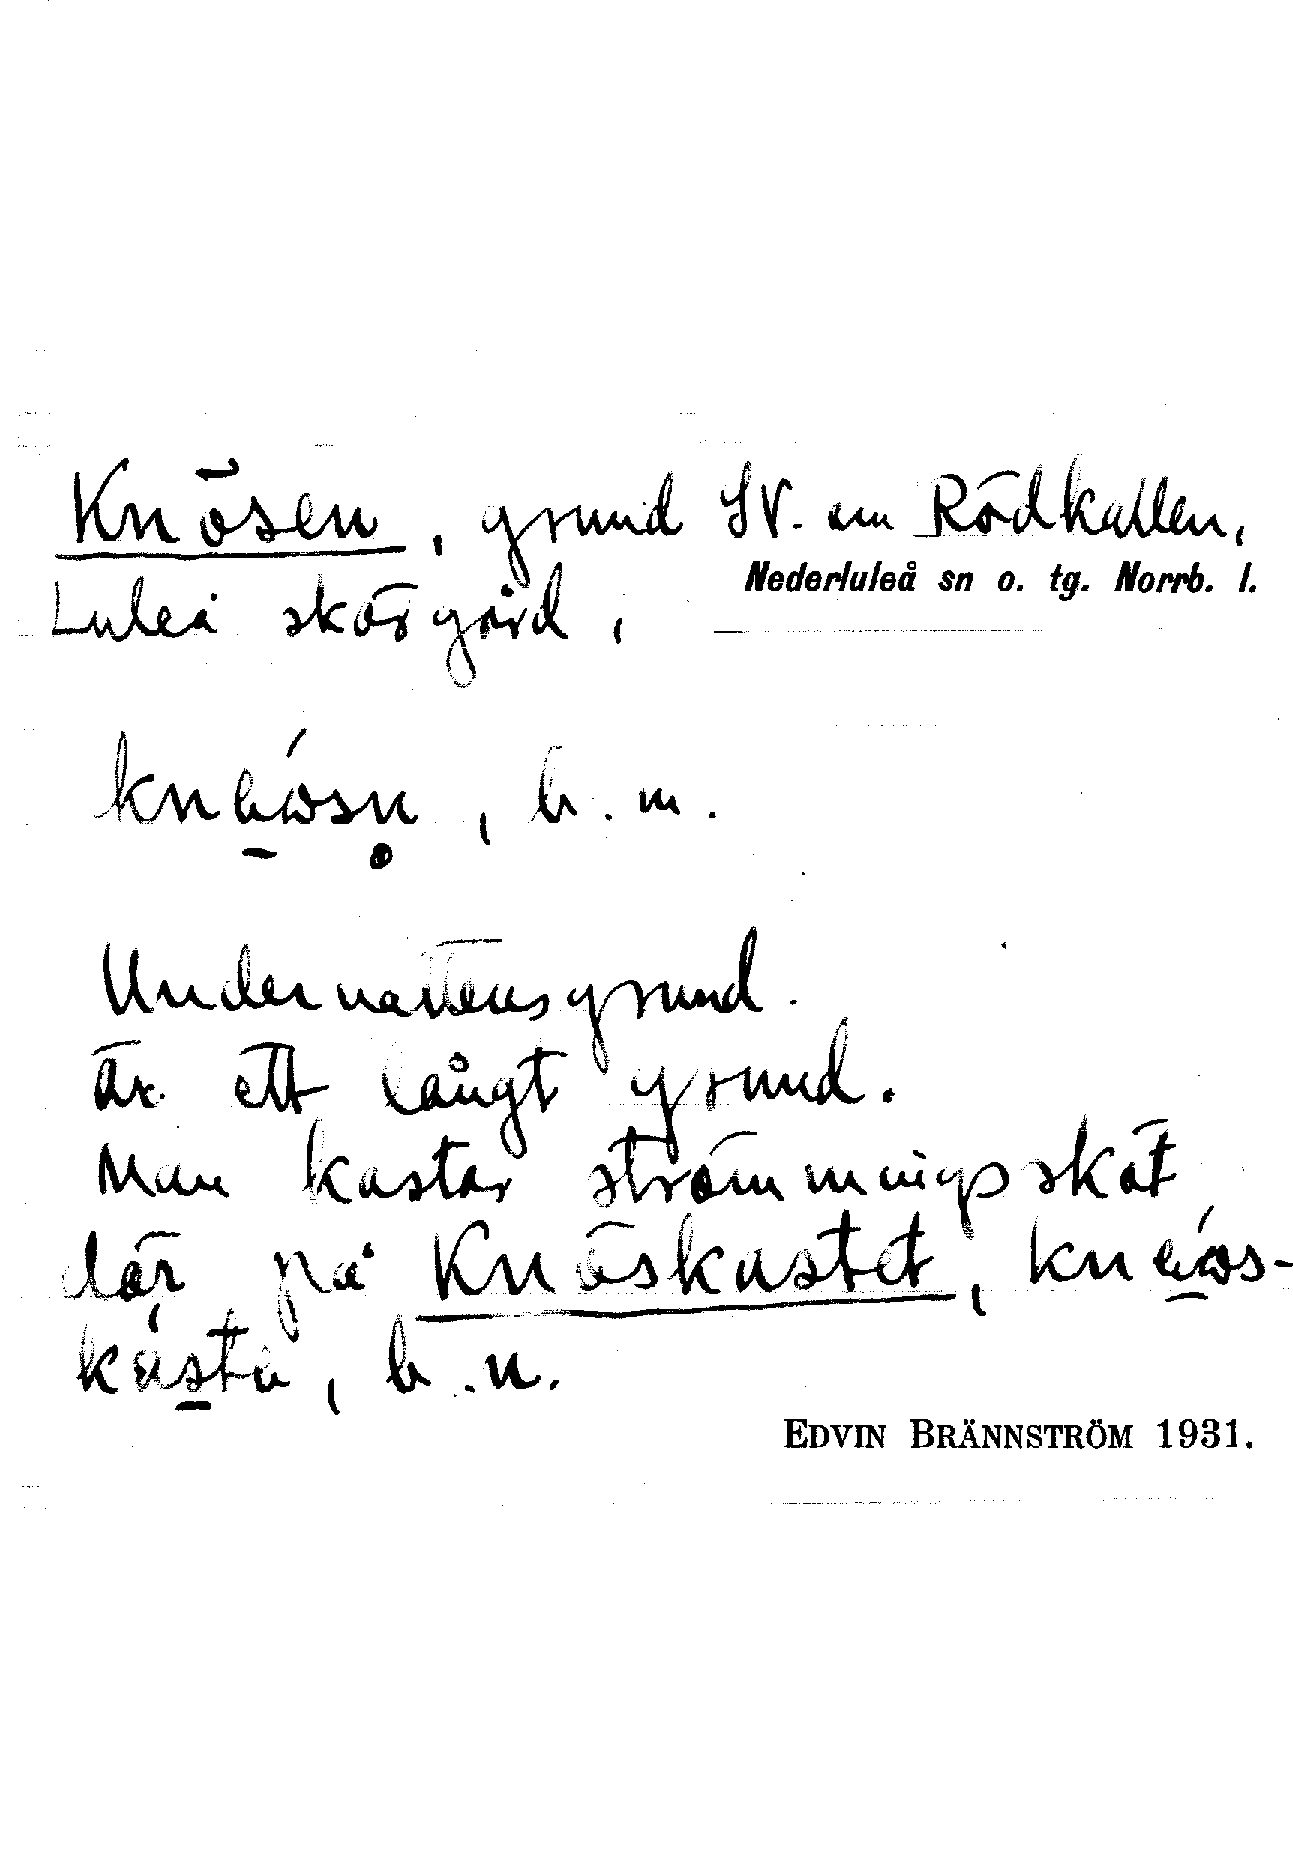 Knösen, grund SV. om Rödkallen,
Nederluleå sn o. tg. Norrb. l.
Luleå skärgård,
, b. m.
Undervattensgrund.
Är ett långt grund.
Man kastar strömmingssköt
där på Knöskastet,
, b. n.
EDVIN BRÄNNSTRÖM 1931.